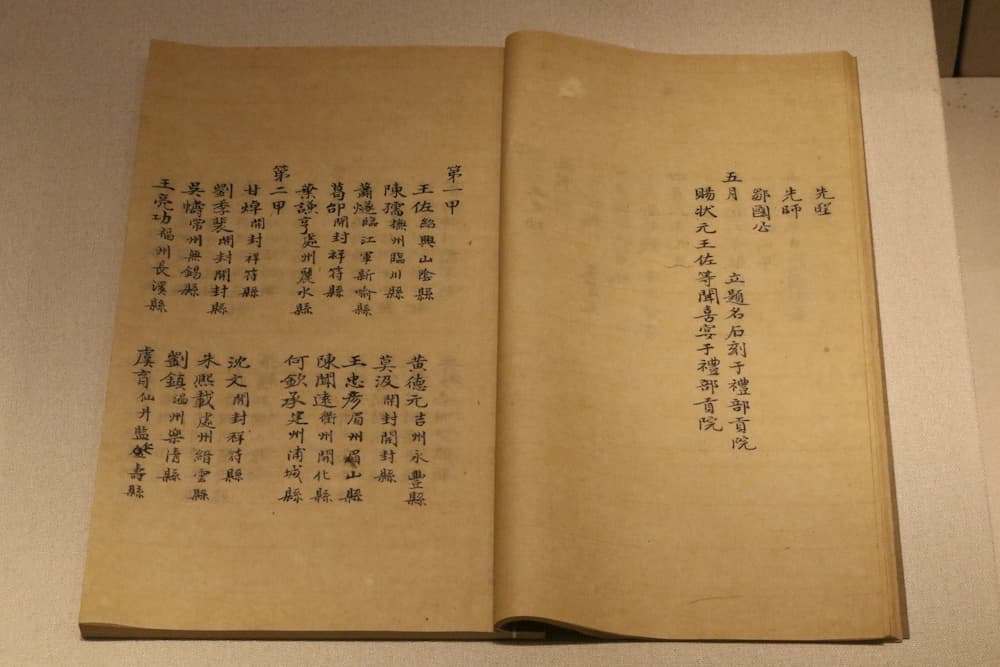 先聖
先師
鄒國公
五月 立題名石刻于禮部貢院
賜狀元王佐等聞喜宴于禮部貢院
第一甲
王佐紹興山陰縣 黃德元吉州永豐縣
陳孺撫州臨川縣 莫汲開封開封縣
蕭燧臨江軍新喻縣 王忠彥眉州眉山縣
葛開封祥符縣 陳聞遠衢州開化縣
葉謙亨處州麗水縣 何欽承建州浦城縣
第二甲
甘焯開封祥符縣 沈文開封祥符縣
劉季裴開封開封縣 朱熙載處州縉雲縣
吳燽常州無錫縣 劉鎮溫州樂清縣
王亮功福州長溪縣 虞育仙井監壽縣